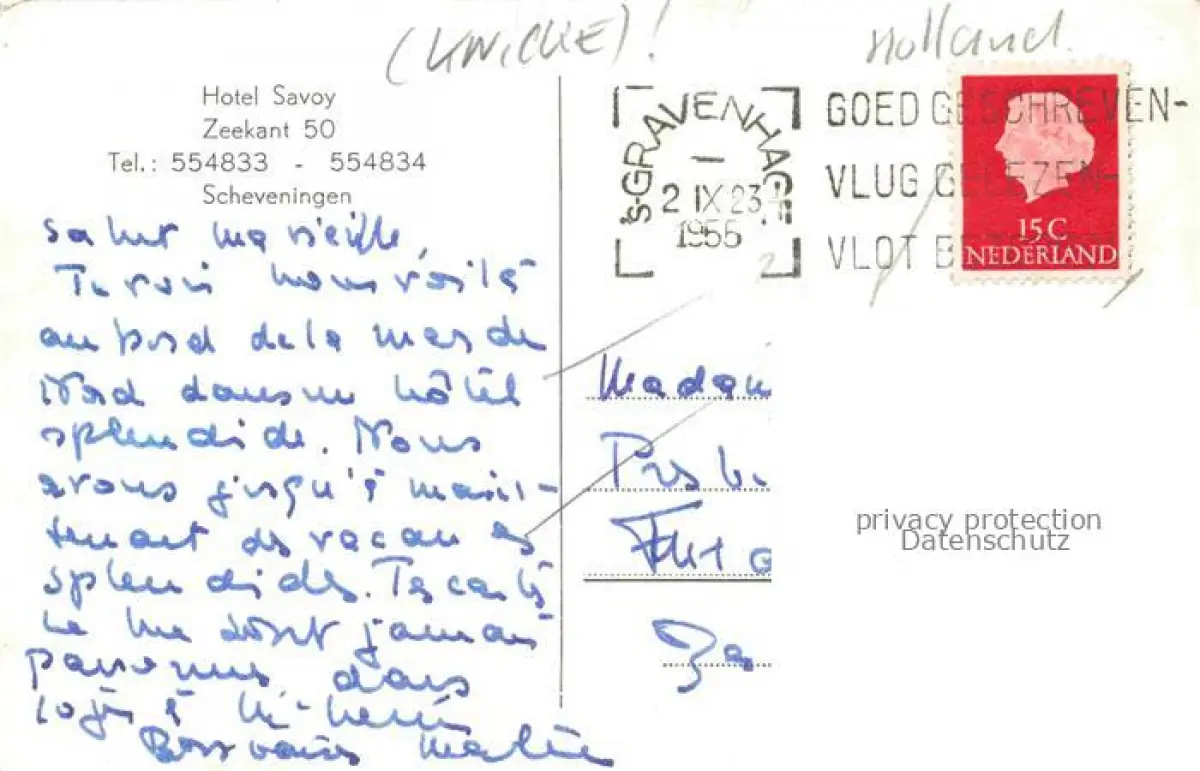 (KNICKE)!
Holland.
Hotel Savoy
Zeekant 50
Tel.: 554833 - 554834
Scheveningen
's-GRAVENHAGE
2 IX 23
1955
GOED GESCHREVEN-
VLUG GELEZEN-
VLOT B
15 C
NEDERLAND
Salut ma vieille,
Tu vois nous voilà
au bord de la mer du
Nord dans un hôtel
splendide. Nous
avons jusqu'à main-
tenant des vacances
splendides. Tes cartes
ne me sont jamais
parvenues, dans
logés à
Bons baisers
Madam
privacy protection
Datenschutz